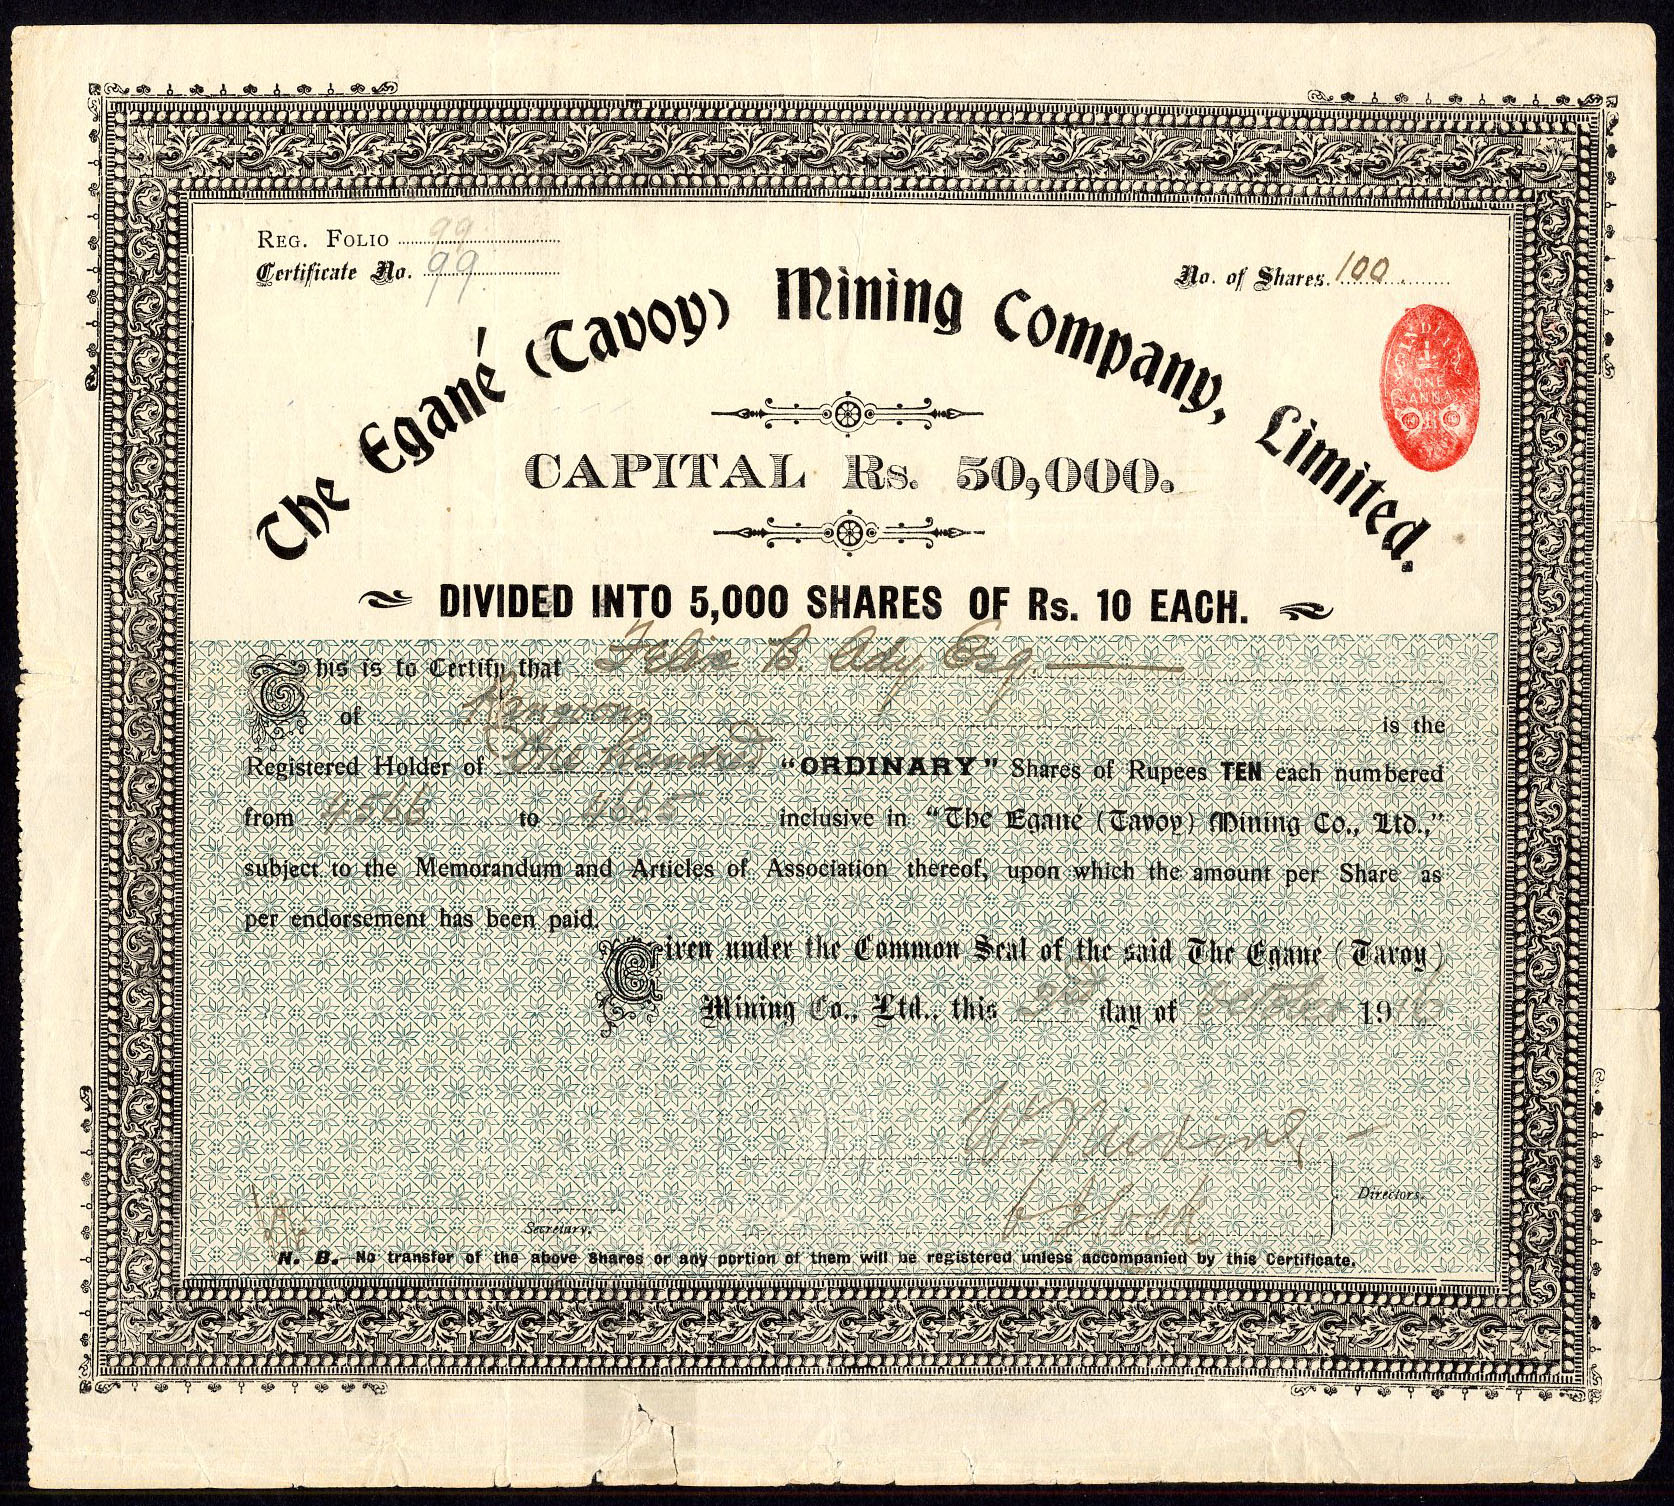 REG. FOLIO 99
Certificate No. 99
No. of Shares. 100
The Egané (Tavoy) Mining Company, Limited.
INDIA
ONE
ANNA
CAPITAL Rs. 50,000.
DIVIDED INTO 5,000 SHARES OF Rs. 10 EACH.
This is to Certify that Felix B Ady Esq
of Rangoon is the
Registered Holder of One hundred "ORDINARY" Shares of Rupees TEN each numbered
from 4566 to 4665 inclusive in "The Egané (Tavoy) Mining Co., Ltd.,"
subject to the Memorandum and Articles of Association thereof, upon which the amount per Share as
per endorsement has been paid.
Given under the Common Seal of the said The Egane (Tavoy)
Mining Co., Ltd., this day of October 1916
Directors.
Secretary.
N. B.—No transfer of the above Shares or any portion of them will be registered unless accompanied by this Certificate.